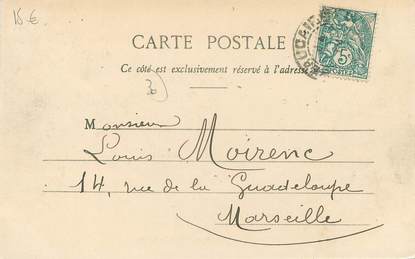 15 €
CARTE POSTALE
Ce côté est exclusivement réservé à l'adresse
30
Monsieur
Louis Moirenc
14, rue de la Guadeloupe
Marseille
5